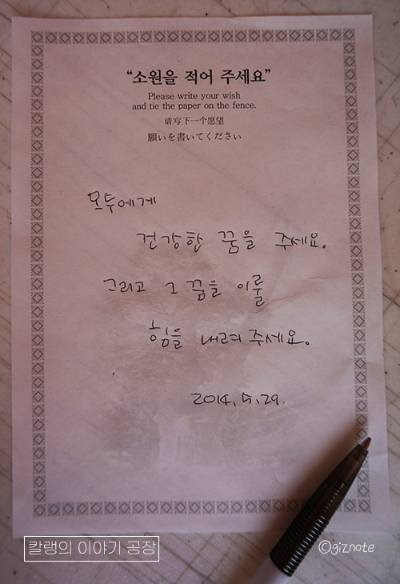 “소원을 적어 주세요”
Please write your wish
and tie the paper on the fence.
请写下一个愿望
願いを書いてください
모두에게
건강한 꿈을 주세요.
그리고 그 꿈을 이룰
힘을 내려 주세요.
2014. 5. 29.
칼랭의 이야기 공장
©gíznote